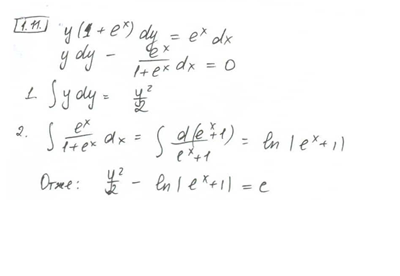 1.11. y(1 + eˣ) dy = eˣ dx
y dy - eˣ/(1+eˣ) dx = 0
1. ∫ y dy = y²/2
2. ∫ eˣ/(1+eˣ) dx = ∫ d(eˣ+1)/(eˣ+1) = ln |eˣ+1|
y²/2 - ln |eˣ+1| = c